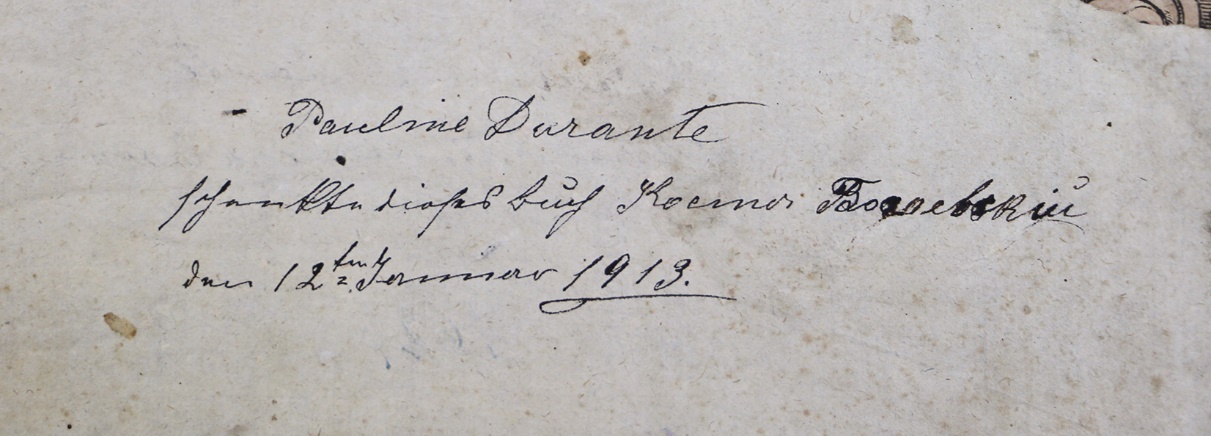 Pauline Durante
schenkte dieses buch Kosmos
den 12ten Januar 1913.